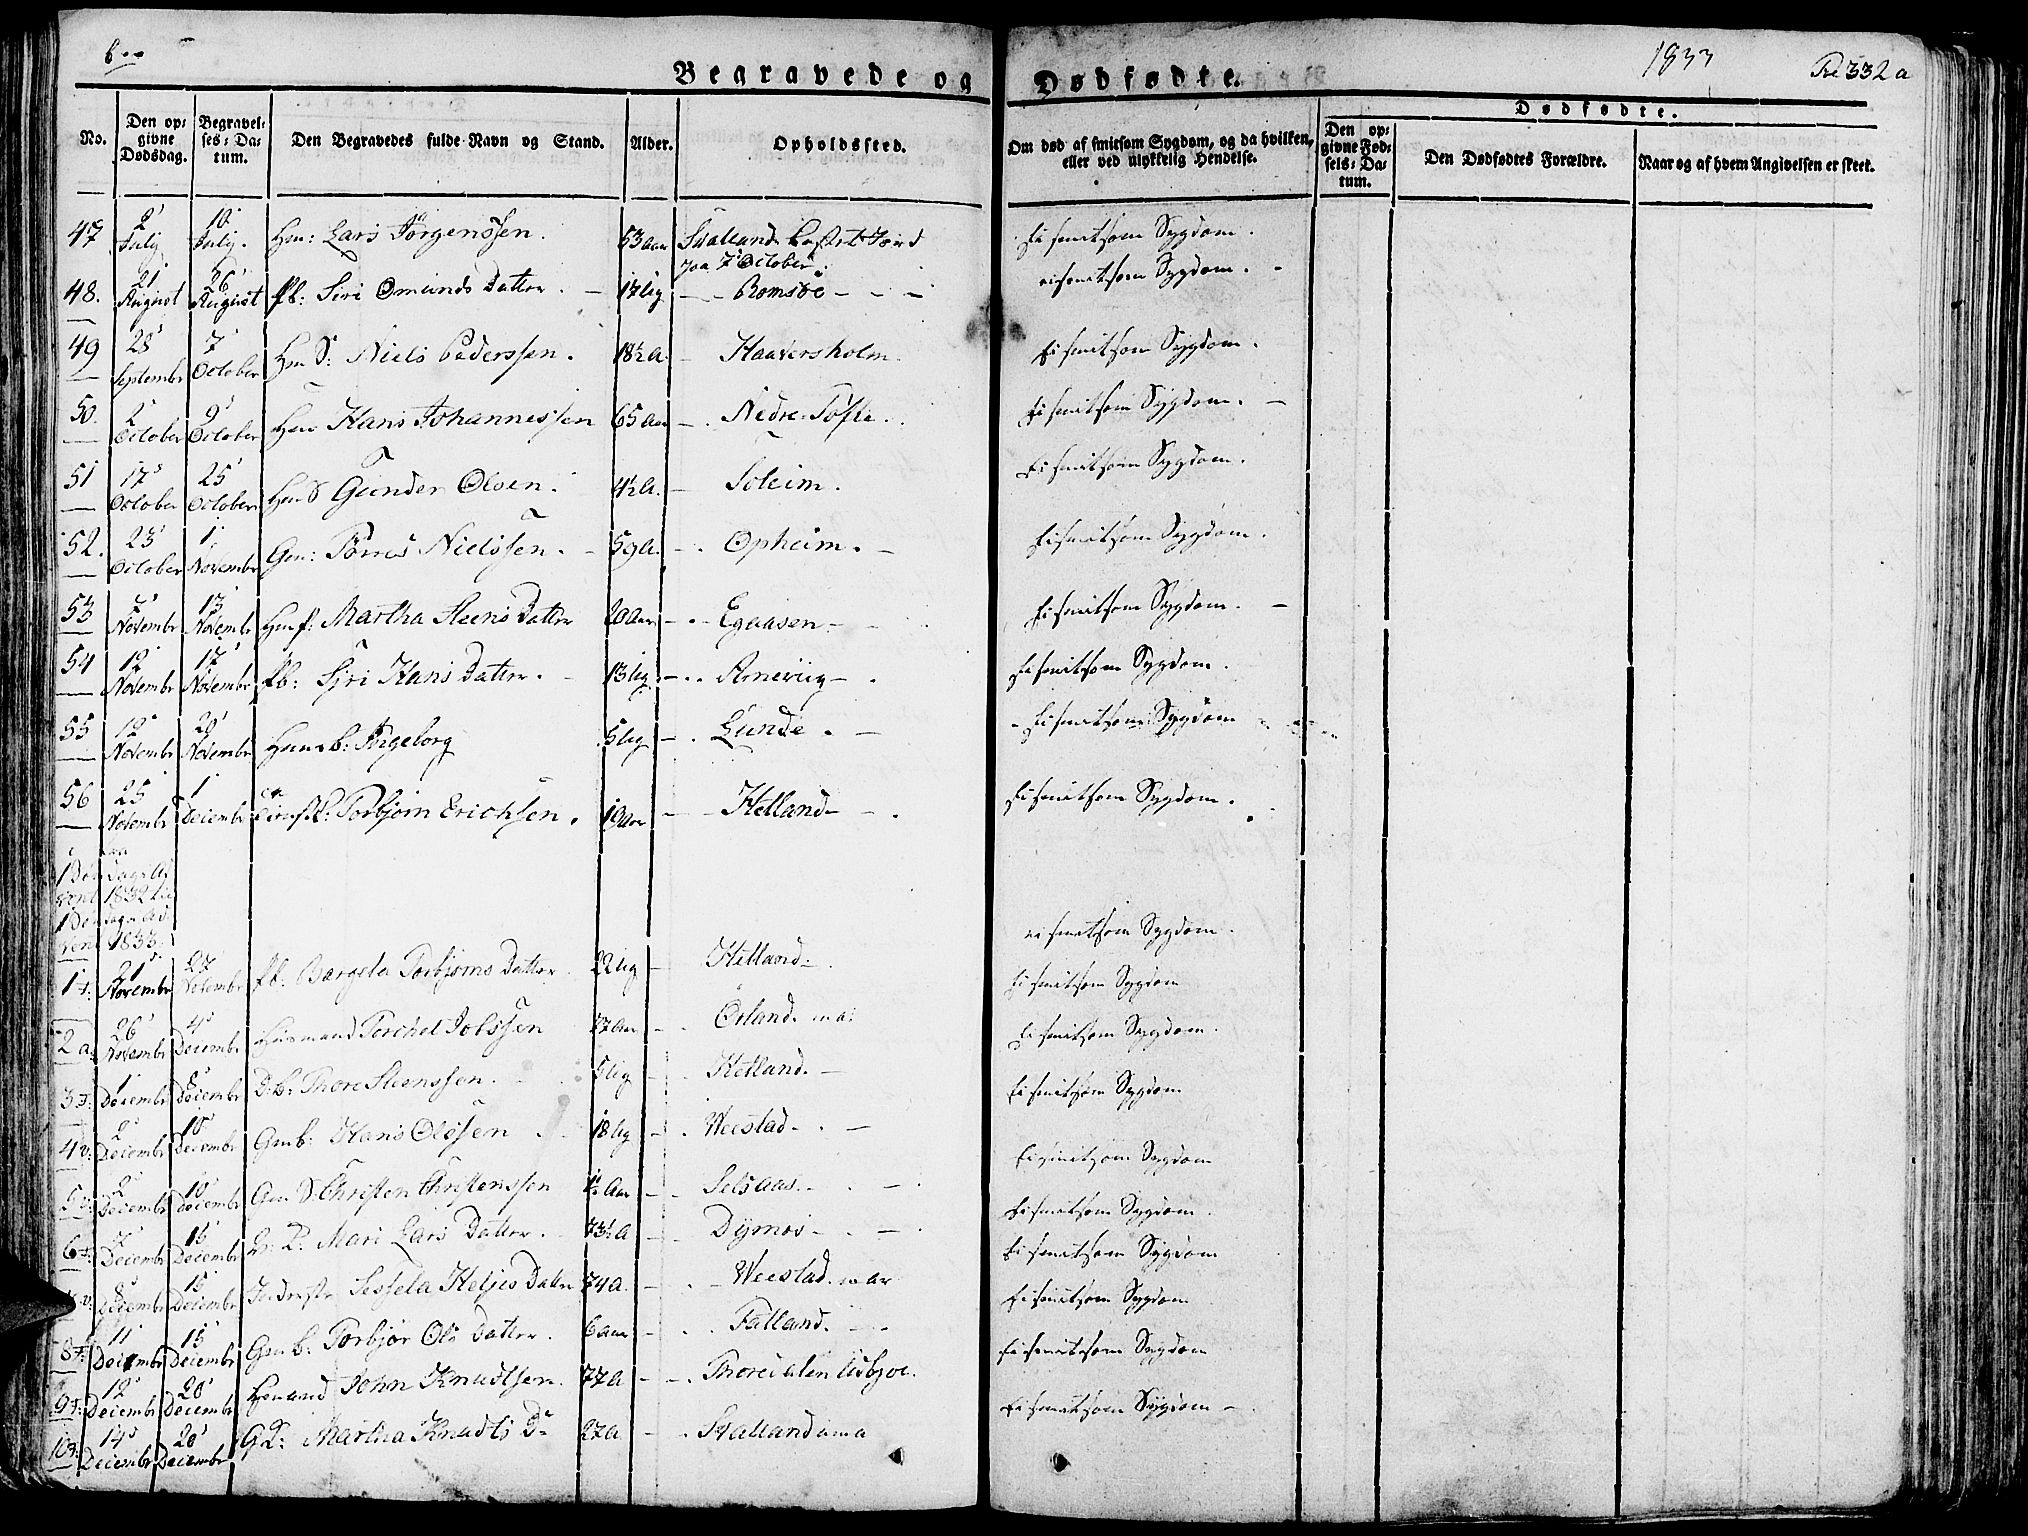 1833
332 a
Begravede og Dødfødte.
Dødfødte.
No. Den opgivne Dødsdag. Begravelses-Datum. Den Begravedes fulde Navn og Stand. Alder. Opholdssted. Om død af smitsom Sygdom, og da hvilken, eller ved ulykkelig Hendelse. Den opgivne Fødsels-Datum. Den Dødfødtes Forældre. Naar og af hvem Angivelsen er skeet.
47 2' July 10' July. Hm: Lars Jörgenssen. 53 aar Ei smitsom Sygdom.
7' October
48. 21' August 26' August Pb: Siri Omunds Datter. 17 ug Bomsöe ei smitsom Sygdom.
49 28' September 7' October Hm S: Niels Pederssen. 18½ A. Haaversholm. Ei smitsom Sygdom.
50. 2' October 9' October Hm Hans Johannessen 65 aar Nedre Tofte. Ei smitsom Sygdom.
51 17' October 25' October Hm S Gunder Olsen. 4½ A. Soleim. Ei smitsom Sygdom.
52. 23' October 1' November Gm: Törres Nielssen. 59 A. Opheim. Ei smitsom Sygdom.
53 Novembr 13' Novembr Martha Steens Datter 20 aar Egaasen Ei smitsom Sygdom.
54 12' Novembr 17' Novembr Pb: Siri Hans Datter. 13 ug. Arneviig Ei smitsom Sygdom.
55 12' Novembr 20' Novembr Ingeborg 5 ug Lunde. Ei smitsom Sygdom
56 25' Novembr 1 Decembr Torbjörn Erichsen. 19 aar Helland Ei smitsom Sygdom.
1832
1833
ei smitsom Sygdom.
1 21' Novembr 27 Novembr Pb: Bargela Torbjörns Datter. 22 ug Helland Ei smitsom Sygdom
2 26' Novembr 4' Decembr Huusmand Torchel Jobssen 17 aar Örland Ei smitsom Sygdom.
3 1' Decembr 8' Decembr D.b: Thore Steenssen. 5 ug Helland. Ei smitsom Sygdom
4 2' Decembr 10' Decembr Gmb: Hans Olssen 18 ug Weestad Ei smitsom Sygdom
5 2' Decembr 10' Decembr Gm S. Christen Christenssen 1½ Aar Selsaas Ei smitsom Sygdom.
6 7' Decembr 15' Decembr Mari Lars Datter. 73½ A Dysnæs Ei smitsom Sygdom
8' Decembr 15' Decembr Inderstr Sessela Heljes Datter 74 a. Weestad Ei smitsom Sygdom
8 11' Decembr 15' Decembr Gmb: Torbjör Ols Datter. 6 aar Fatland. Ei smitsom Sygdom
9 12' Decembr 20' Decembr John Knudtsen. 77 a Ei smitsom Sygdom
10 14' Decembr 20' Decembr Martha Knudts D 27 a